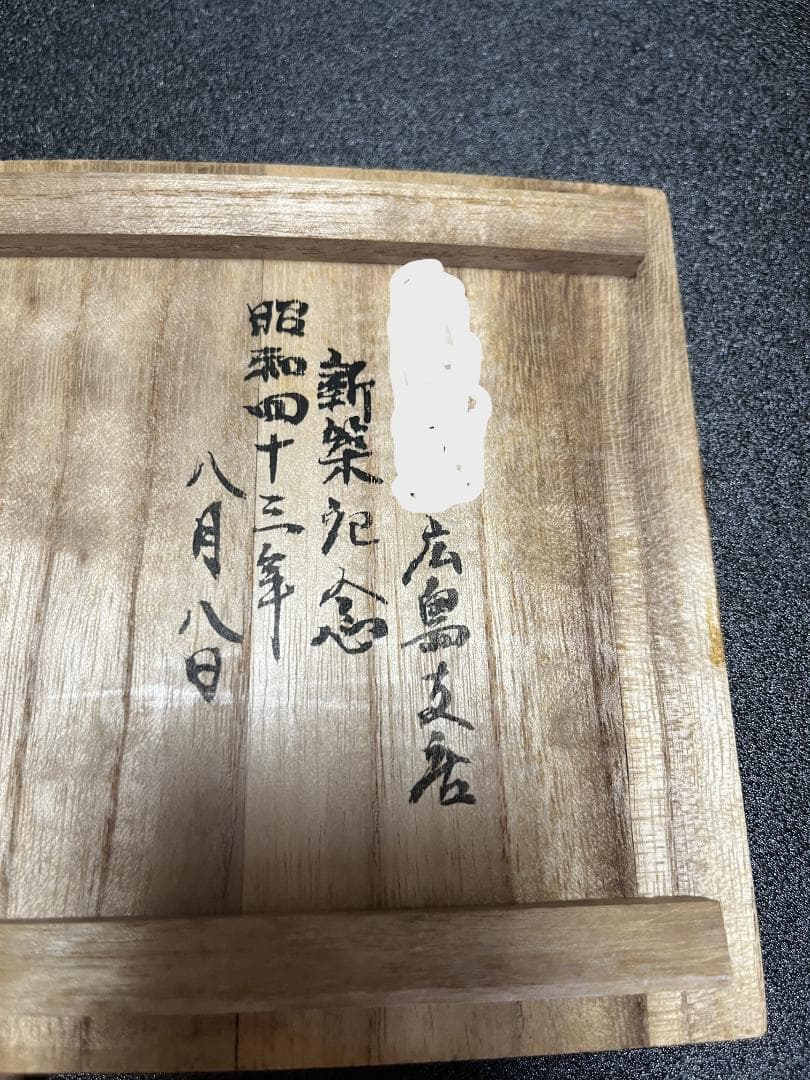 広島支店
新築記念
昭和四十三年
八月八日